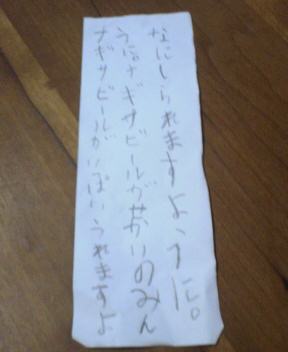 ナギサビールがいぱいうれますよ
うに。ナギサビールがせかいのみん
なにしられますように。